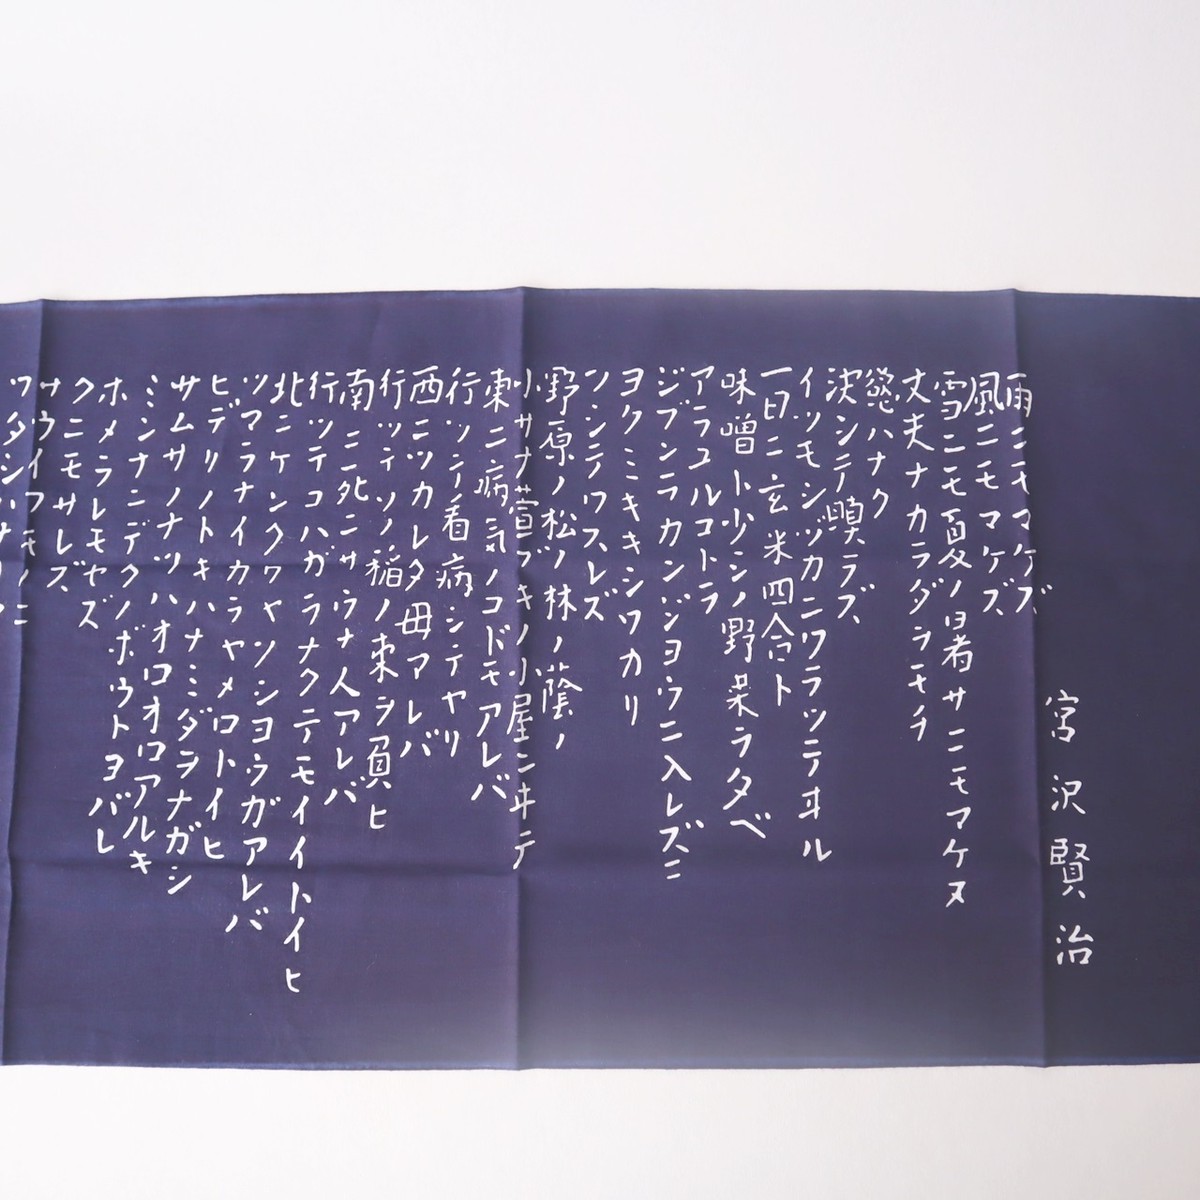 宮沢賢治
雨ニモマケズ
風ニモマケズ
雪ニモ夏ノ暑サニモマケヌ
丈夫ナカラダヲモチ
慾ハナク
決シテ瞋ラズ
イツモシヅカニワラッテヰル
一日ニ玄米四合ト
味噌ト少シノ野菜ヲタベ
アラユルコトヲ
ジブンヲカンジョウニ入レズニ
ヨクミキキシワカリ
ソシテワスレズ
野原ノ松ノ林ノ蔭ノ
小サナ萱ブキノ小屋ニヰテ
東ニ病気ノコドモアレバ
行ッテ看病シテヤリ
西ニツカレタ母アレバ
行ッテソノ稲ノ束ヲ負ヒ
南ニ死ニサウナ人アレバ
行ッテコハガラナクテモイイトイヒ
北ニケンクヮヤソショウガアレバ
ツマラナイカラヤメロトイヒ
ヒデリノトキハナミダヲナガシ
サムサノナツハオロオロアルキ
ミンナニデクノボウトヨバレ
ホメラレモセズ
クニモサレズ
サウイフモノニ
ワタシハナリタ